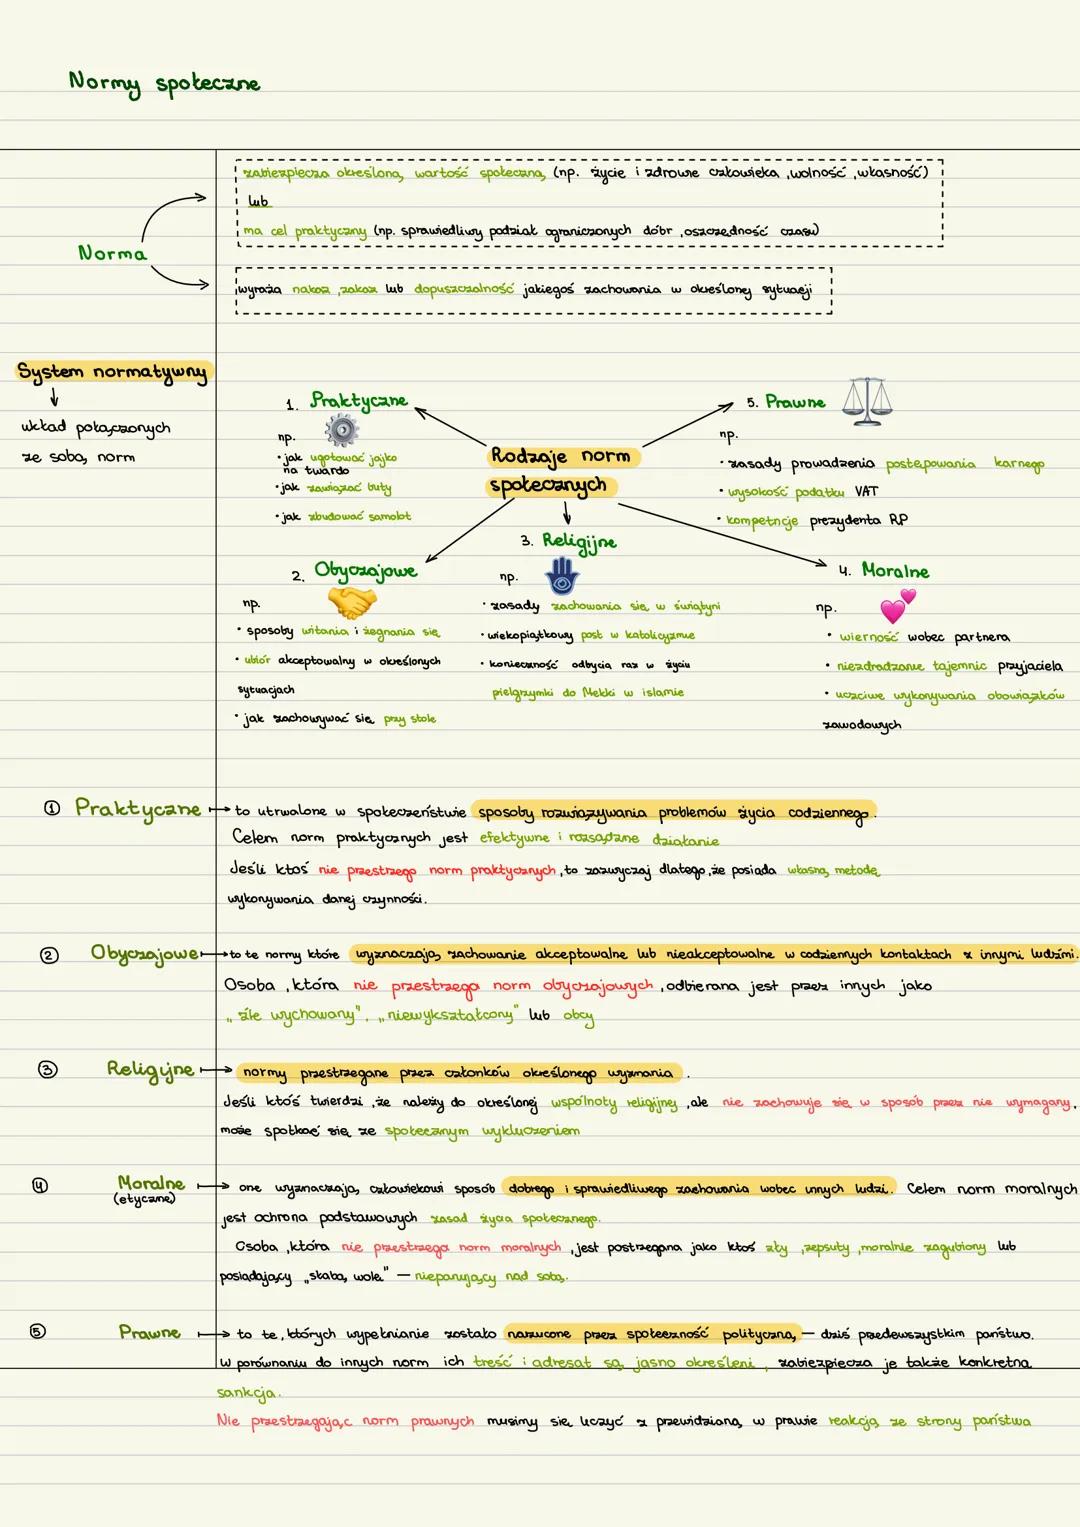 Normy społeczne
zabiezpiecza określoną wartość społeczną (np. życie i zdrowie człowieka ,wolność ,własność)
lub
ma cel praktyczny (np. sprawiedliwy podział ograniczonych dóbr ,oszczędność czasu)
Norma
wyraża nakaz ,zakaz lub dopuszczalność jakiegoś zachowania w określonej sytuacji
System normatywny
układ połączonych
ze sobą norm
Rodzaje norm
społecznych
1. Praktyczne
np.
• jak ugotować jajko
na twardo
• jak zawiązać buty
• jak zbudować samolot
5. Prawne
np.
• zasady prowadzenia postępowania karnego
• wysokość podatku VAT
• kompetncje prezydenta RP
2. Obyczajowe
np.
• sposoby witania i żegnania się
• ubiór akceptowalny w określonych
sytuacjach
• jak zachowywać się przy stole
3. Religijne
np.
• zasady zachowania się w świątyni
• wiekopiątkowy post w katolicyzmie
• konieczność odbycia raz w życiu
pielgrzymki do Mekki w islamie
4. Moralne
np.
• wierność wobec partnera
• niezdradzanie tajemnic przyjaciela
• uczciwe wykonywania obowiązków
zawodowych
① Praktyczne to utrwalone w społeczeństwie sposoby rozwiązywania problemów życia codziennego.
Celem norm praktycznych jest efektywne i rozsądzne działanie
Jeśli ktoś nie przestrzega norm praktycznych ,to zazwyczaj dlatego ,że posiada własną metodę
wykonywania danej czynności.
② Obyczajowe to te normy które wyznaczają zachowanie akceptowalne lub nieakceptowalne w codziennych kontaktach z innymi ludźmi.
Osoba ,która nie przestrzega norm obyczajowych ,odbierana jest przez innych jako
„źle wychowany", „niewykształcony" lub obcy
③ Religijne normy przestrzegane przez członków określonego wyznania .
Jeśli ktoś twierdzi ,że należy do określonej wspólnoty religijnej ,ale nie zachowuje się w sposób przez nie wymagany,
może spotkać się ze społecznym wykluczeniem
④ Moralne one wyznaczają człowiekowi sposób dobrego i sprawiedliwego zachowania wobec innych ludzi. Celem norm moralnych
(etyczne)
jest ochrona podstawowych zasad życia społecznego.
Osoba ,która nie przestrzega norm moralnych ,jest postrzegana jako ktoś zły ,zepsuty ,moralnie zagubiony lub
posiadający „słabą wolę" — niepanujący nad sobą.
⑤ Prawne to te, których wypełnianie zostało narzucone przez społeczność polityczną — dziś przedewszystkim państwo.
W porównaniu do innych norm ich treść i adresat są jasno określeni , zabiezpiecza je także konkretna
sankcja.
Nie przestrzegając norm prawnych musimy się liczyć z przewidzianą w prawie reakcją ze strony państwa